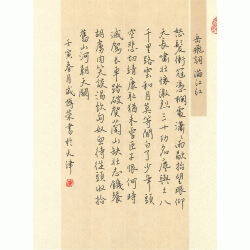 岳飛詞 滿江紅
怒髮衝冠憑欄處瀟瀟雨歇抬望眼仰
天長嘯壯懷激烈三十功名塵與土八
千里路雲和月莫等閒白了少年頭
空悲切靖康恥猶未雪臣子恨何時
滅駕長車踏破賀蘭山缺壯志飢餐
胡虜肉笑談渴飲匈奴血待從頭收拾
舊山河朝天闕
壬寅春月書於天津